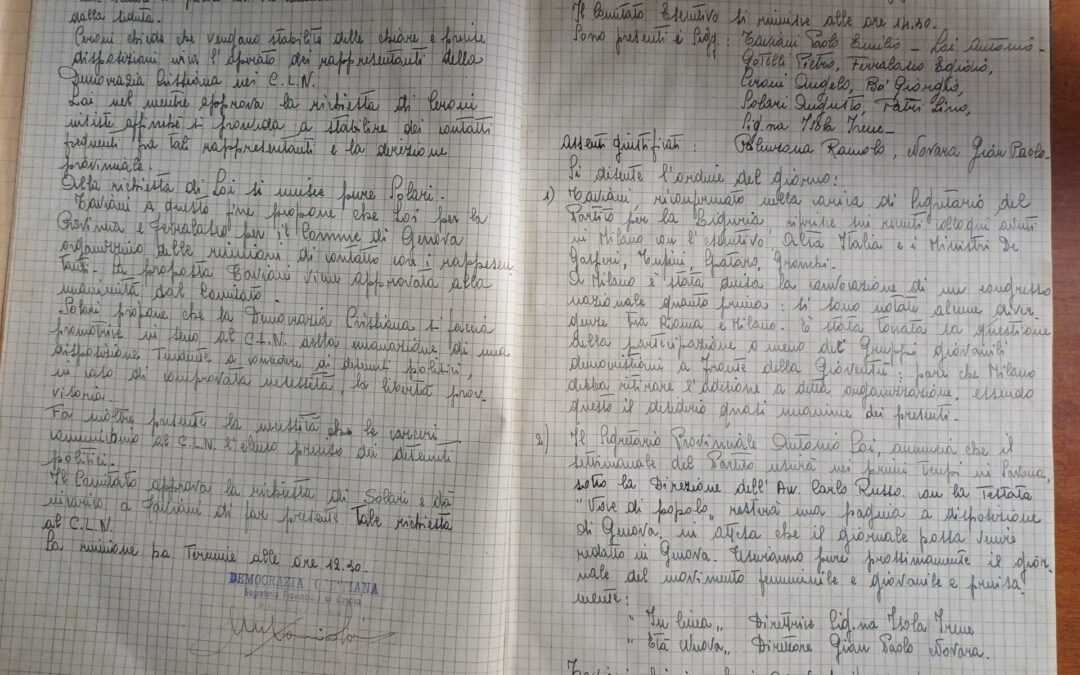 dalla seduta.
Ceroni chiede che vengano stabilite delle chiare e precise
disposizioni circa l'operato dei rappresentanti della
Democrazia Cristiana nei C.L.N.
Lai nel mentre approva la richiesta di Ceroni
insiste affinché si provveda a stabilire dei contatti
frequenti fra tali rappresentanti e la direzione
provinciale.
Alla richiesta di Lai si unisce pure Solari.
Taviani a questo fine propone che Lai per la
Provincia e Ferralasco per il Comune di Genova
organizzino delle riunioni di contatto con i rappresen
tanti. La proposta Taviani viene approvata alla
unanimità dal Comitato.
Solari propone che la Democrazia Cristiana si faccia
promotrice in seno al C.L.N. della emanazione di una
disposizione tendente a concedere ai detenuti politici,
in caso di comprovata necessità, la libertà prov-
visoria.
Fa inoltre presente la necessità che le carceri
comunichino al C.L.N. l'elenco preciso dei detenuti
politici.
Il Comitato approva la richiesta di Solari e dà
incarico a Taviani di far presente tale richiesta
al C.L.N.
La riunione ha termine alle ore 12.30.
DEMOCRAZIA CRISTIANA
Segreteria Provinciale di Genova
Il Comitato Esecutivo si riunisce alle ore 14.30.
Sono presenti i Sigg: Taviani Paolo Emilio - Lai Antonio -
Gotelli Pietro, Ferralasco Egidio,
Ceroni Angelo, Bo' Giorgio,
Solari Augusto, Fatri Lino,
Sig.na Isola Irene -
Assenti giustificati: Palenzona Ramolo, Novara Gian Paolo -
Si discute l'ordine del giorno:
1) Taviani, riconfermato nella carica di Segretario del
Partito per la Liguria, riferisce sui recenti colloqui avuti
in Milano con l'esecutivo Alta Italia e i Ministri De
Gasperi, Tupini, Spataro, Gronchi.
A Milano è stata decisa la convocazione di un congresso
nazionale quanto prima: si sono notate alcune diver
genze tra Roma e Milano. È stata toccata la questione
della partecipazione o meno dei Gruppi giovanili
democristiani a Fronte della Gioventù: pare che Milano
debba ritirare l'adesione a detta organizzazione, essendo
questo il desiderio quasi unanime dei presenti.
2) Il Segretario Provinciale Antonio Lai, annuncia che il
settimanale del Partito uscirà nei primi tempi in Savona,
sotto la Direzione dell'Av. Carlo Russo. con la testata
"Voce di popolo" resterà una pagina a disposizione
di Genova, in attesa che il giornale possa venire
redatto in Genova. Usciranno pure prossimamente il gior-
nale del movimento femminile e giovanile e precisa-
mente:
"In linea" Direttrice Sig.na Isola Irene
"Età Nuova" Direttore Gian Paolo Novara.